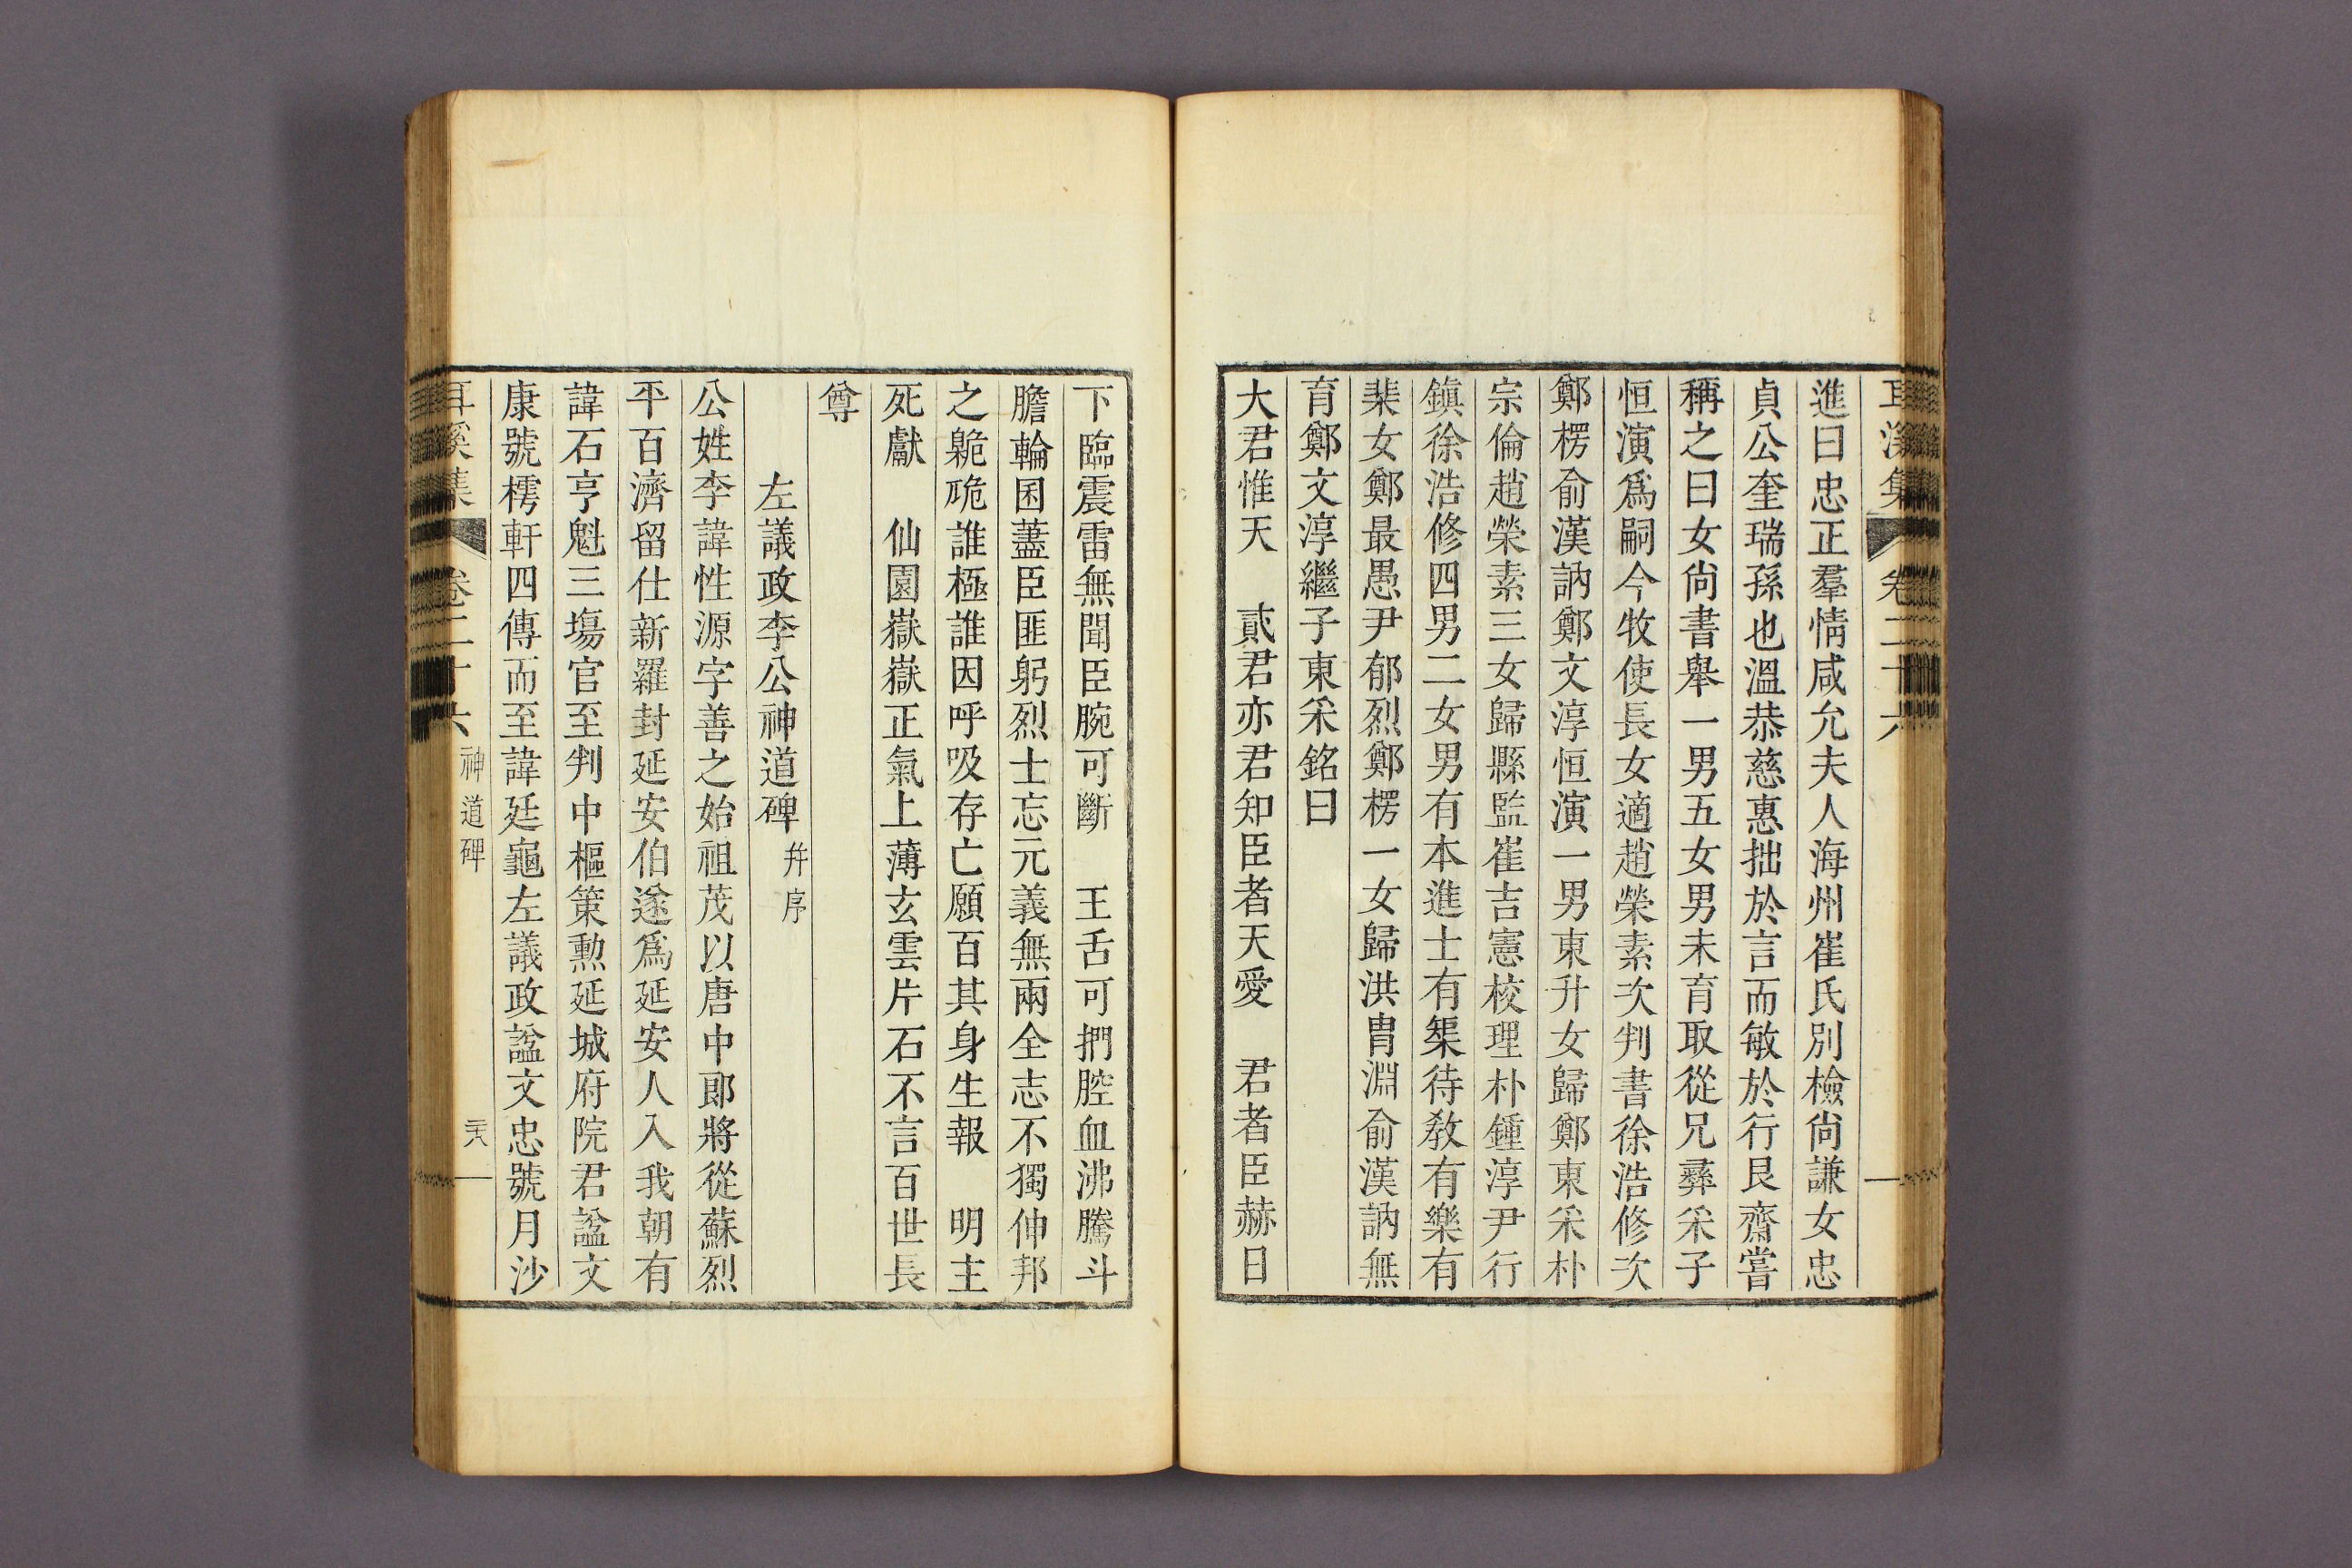 耳溪集 卷二十六
進曰忠正羣情咸允夫人海州崔氏別檢尙謙女忠
貞公奎瑞孫也溫恭慈惠拙於言而敏於行艮齋嘗
稱之曰女尙書舉一男五女男未育取從兄彛采子
恒演爲嗣今牧使長女適趙榮素次判書徐浩修次
鄭楞俞漢訥鄭文淳恒演一男東升女歸鄭東采朴
宗倫趙榮素三女歸縣監崔吉憲校理朴鍾淳尹行
鎭徐浩修四男二女男有本進士有榘待敎有樂有
棐女鄭最愚尹郁烈鄭楞一女歸洪胄淵俞漢訥無
育鄭文淳繼子東采銘曰
大君惟天 貳君亦君知臣者天愛 君者臣赫日
下臨震雷無聞臣腕可斷 王舌可捫腔血沸騰斗
膽輪囷藎臣匪躬烈士忘元義無兩全志不獨伸邦
之臲卼誰極誰因呼吸存亡願百其身生報 明主
死獻 仙園嶽嶽正氣上薄玄雲片石不言百世長
尊
左議政李公神道碑 幷序
公姓李諱性源字善之始祖茂以唐中郎將從蘇烈
平百濟留仕新羅封延安伯遂爲延安人入我朝有
諱石亨魁三塲官至判中樞策勲延城府院君諡文
康號樗軒四傳而至諱廷龜左議政諡文忠號月沙
耳溪集 卷二十六 神道碑 二十八